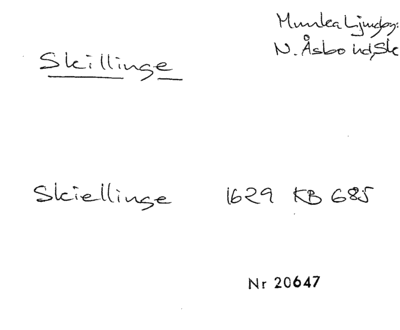 Munka Ljungby
N. Åsbo hd, Sk
Skillinge
Skiellinge 1629 KB 685
Nr 20647